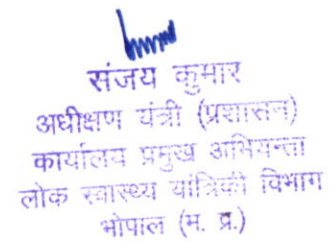 संजय कुमार
अधीक्षण यंत्री (प्रशासन)
कार्यालय प्रमुख अभियन्ता
लोक स्वास्थ्य यांत्रिकी विभाग
भोपाल (म. प्र.)